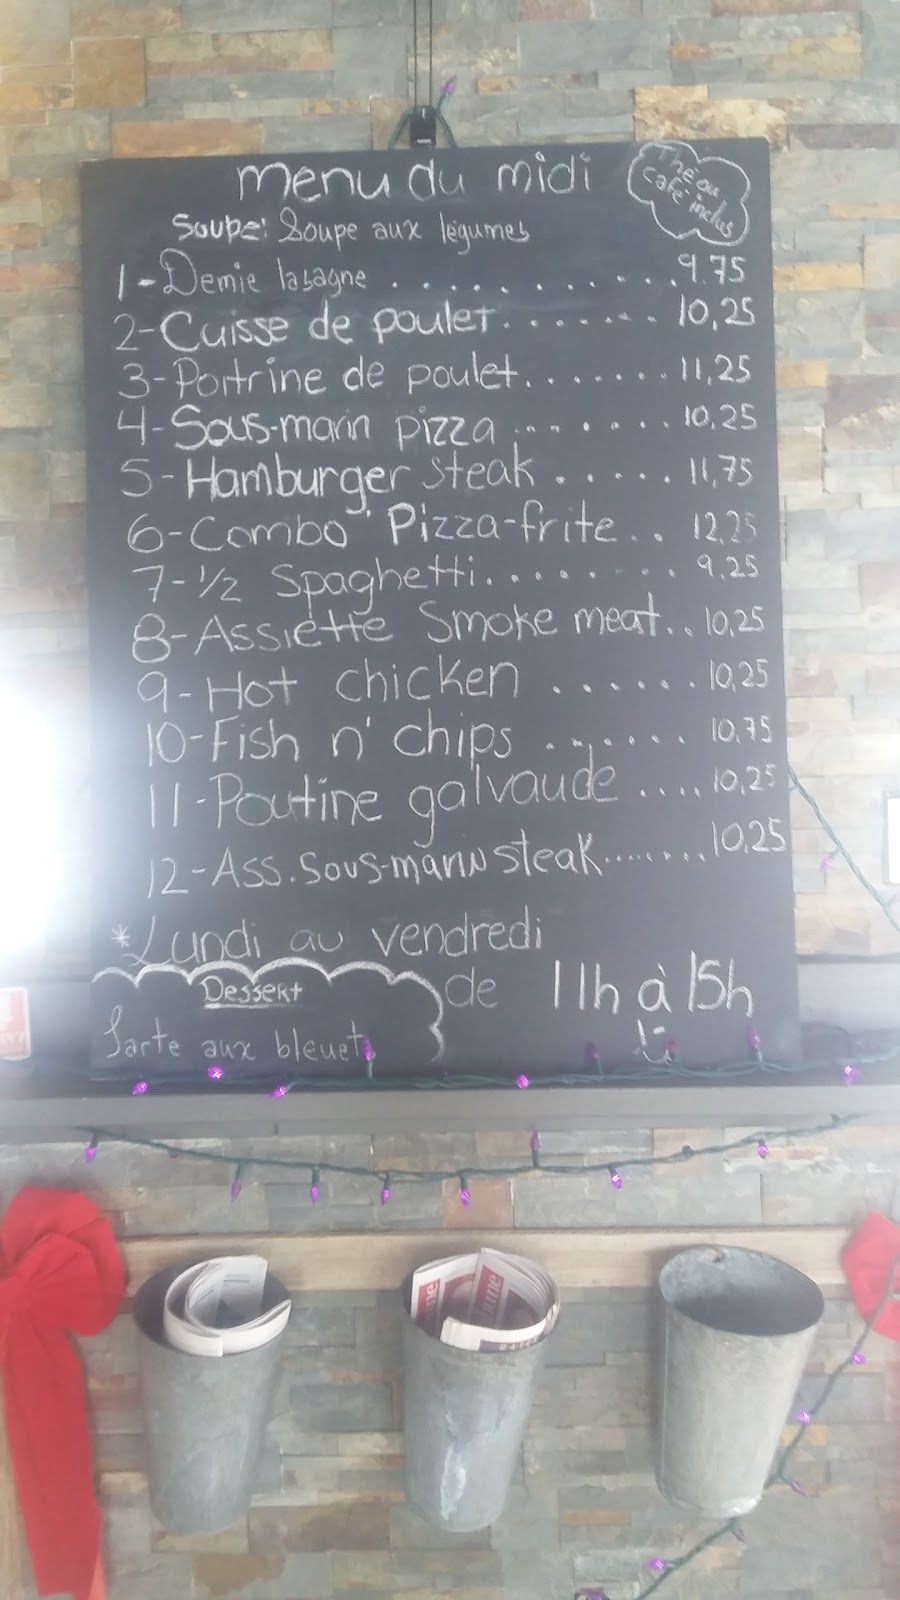 menu du midi
Thé ou
café inclus
Soupe: Soupe aux légumes
1-Demie lasagne ............ 9.75
2-Cuisse de poulet........ 10,25
3-Poitrine de poulet....... 11,25
4-Sous-marin pizza ........ 10,25
5-Hamburger steak ...... 11,75
6-Combo Pizza-frite.. 12,25
7-1/2 Spaghetti......... 9,25
8-Assiette Smoke meat.. 10,25
9-Hot chicken ....... 10,25
10-Fish n' chips ....... 10,75
11-Poutine galvaude .... 10,25
12-Ass. sous-marin steak........ 10,25
*Lundi au vendredi
de 11h à 15h
Dessert
Tarte aux bleuets